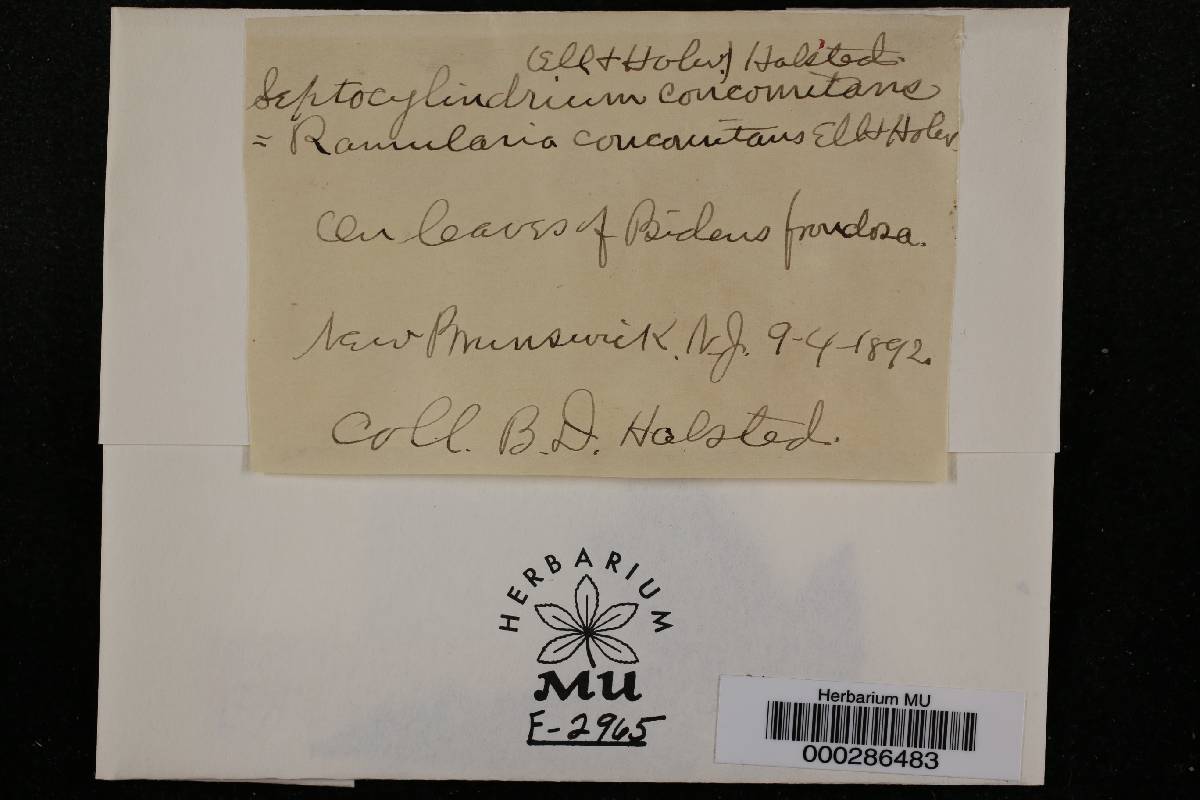 (Ell & Holw.) Halsted.
Septocylindrium concomitans
= Ramularia concomitans Ell & Holw.
On leaves of Bidens frondosa.
New Brunswick, N.J. 9-4-1892.
Coll. B.D. Halsted.
HERBARIUM
MU
F-2965
Herbarium MU
000286483